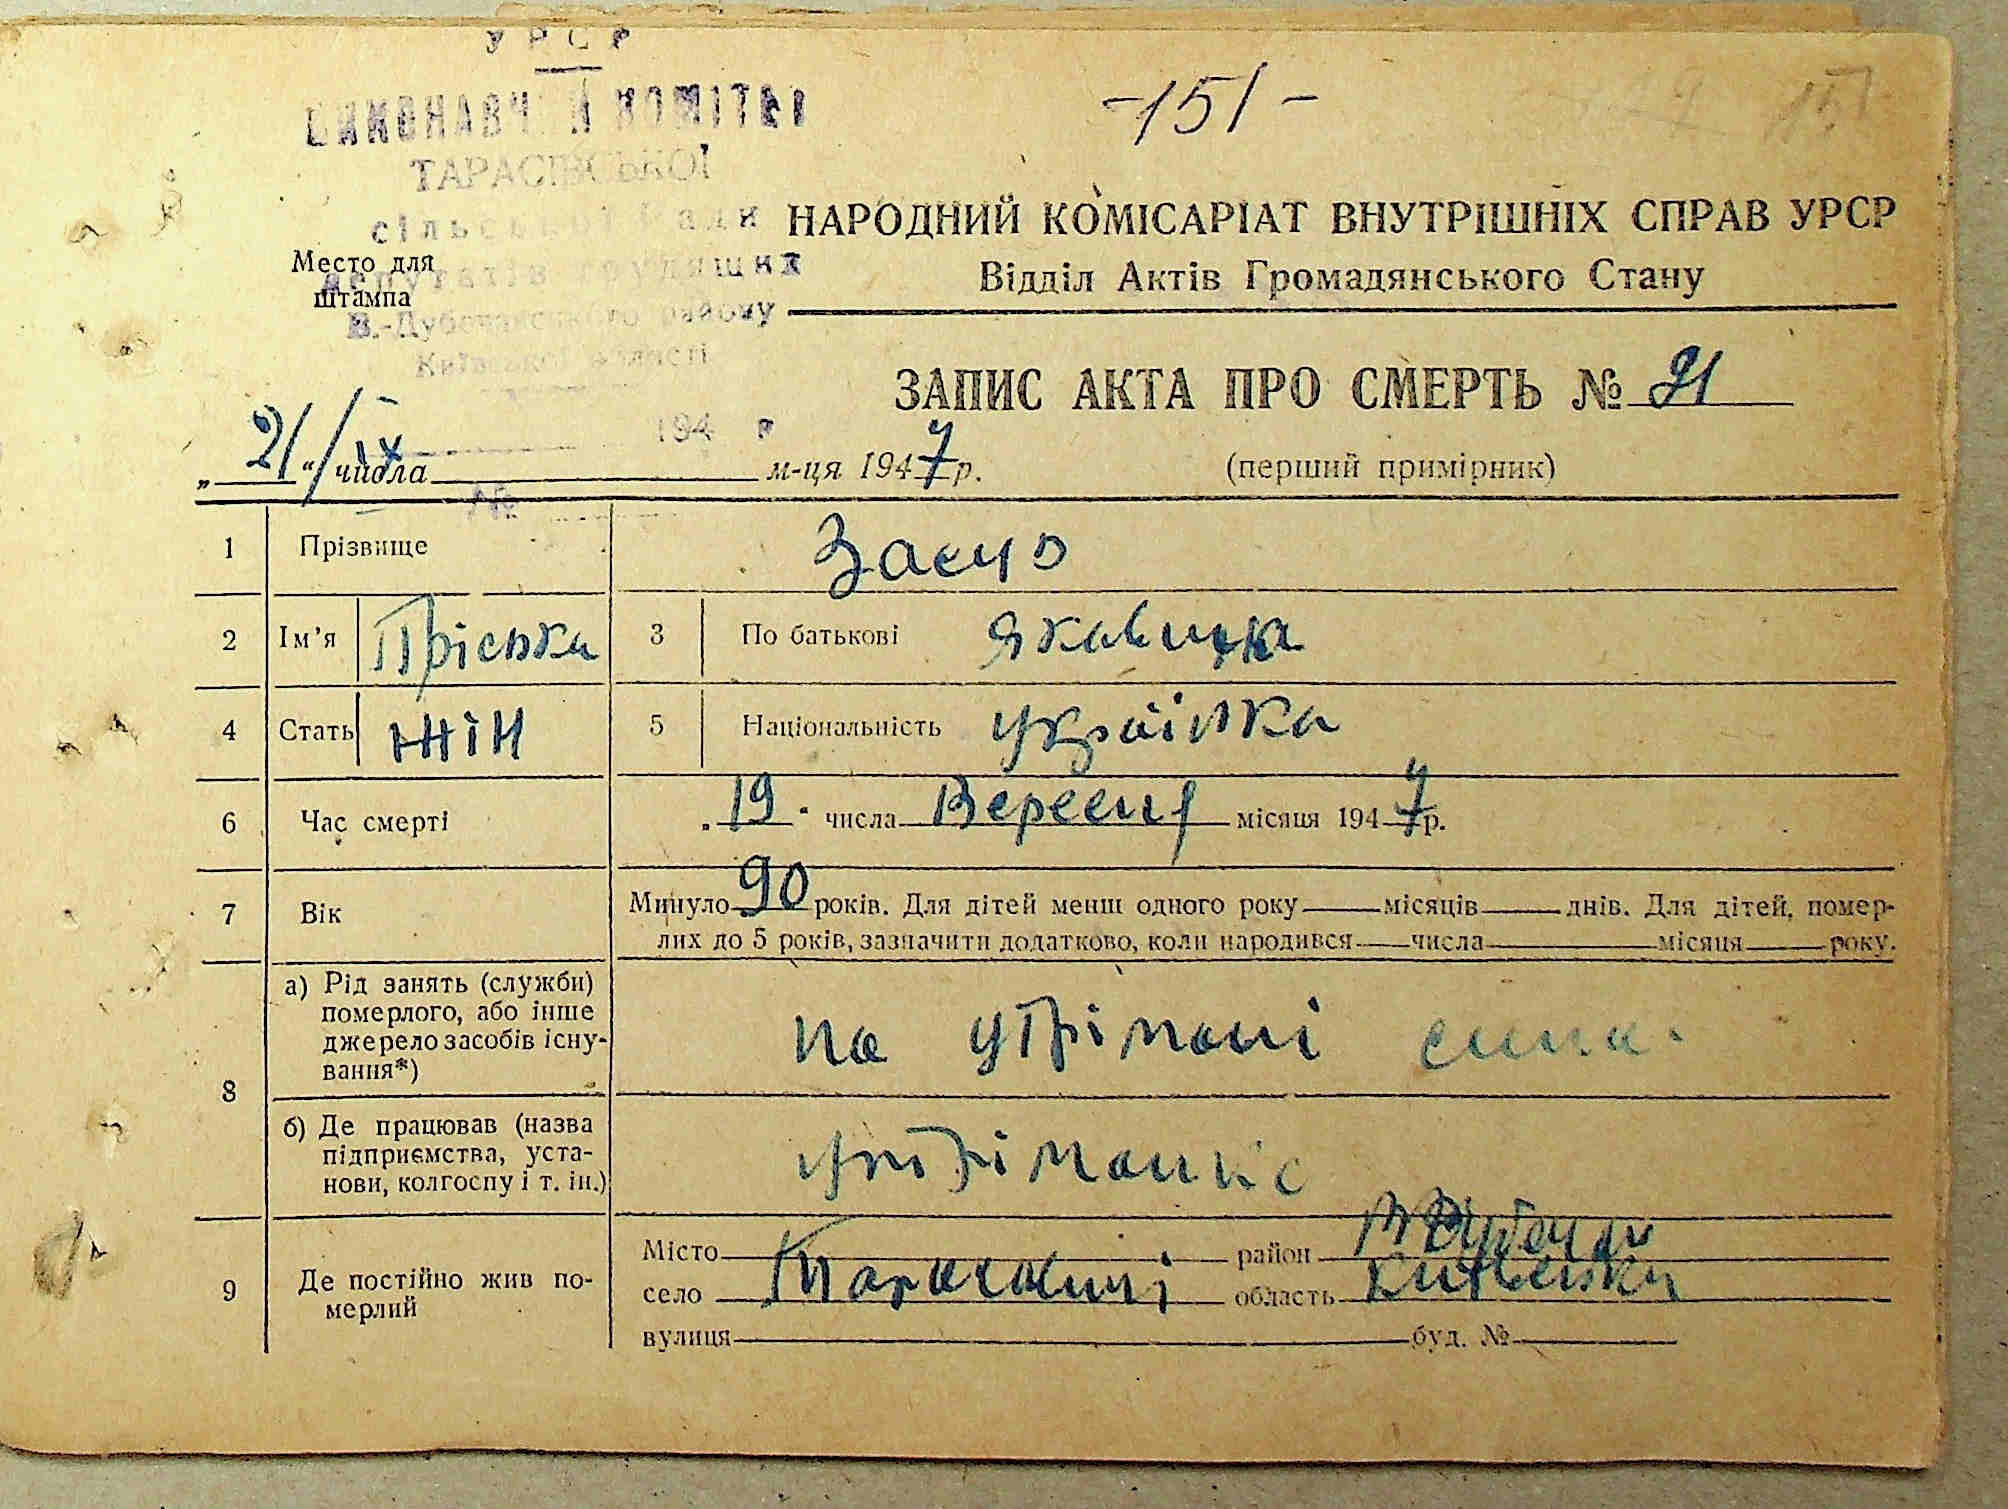 УРСР
ВИКОНАВЧИЙ КОМІТЕТ
ТАРАСІВСЬКОЇ
сільської Ради
депутатів трудящих
В.-Дубечанського району
Київської області
194 р
№
-151-
151
Место для
штампа
НАРОДНИЙ КОМІСАРІАТ ВНУТРІШНІХ СПРАВ УРСР
Відділ Актів Громадянського Стану
ЗАПИС АКТА ПРО СМЕРТЬ № 21
„21“ числа ІХ м-ця 1947 р.
(перший примірник)
1 Прізвище Засуо
2 Ім'я Пріська 3 По батькові Яковична
4 Стать жін 5 Національність українка
6 Час смерті „19“ числа Вересня місяця 1947 р.
7 Вік Минуло 90 років. Для дітей менш одного року місяців днів. Для дітей, помер-
лих до 5 років, зазначити додатково, коли народився числа місяця року.
8 а) Рід занять (служби)
померлого, або інше
джерело засобів існу-
вання*)
на утрімані сина.
б) Де працював (назва
підприємства, уста-
нови, колгоспу і т. ін.)
9 Де постійно жив по-
мерлий
Місто район В Дубечан
село Тарасовичі область Київська
вулиця буд. №